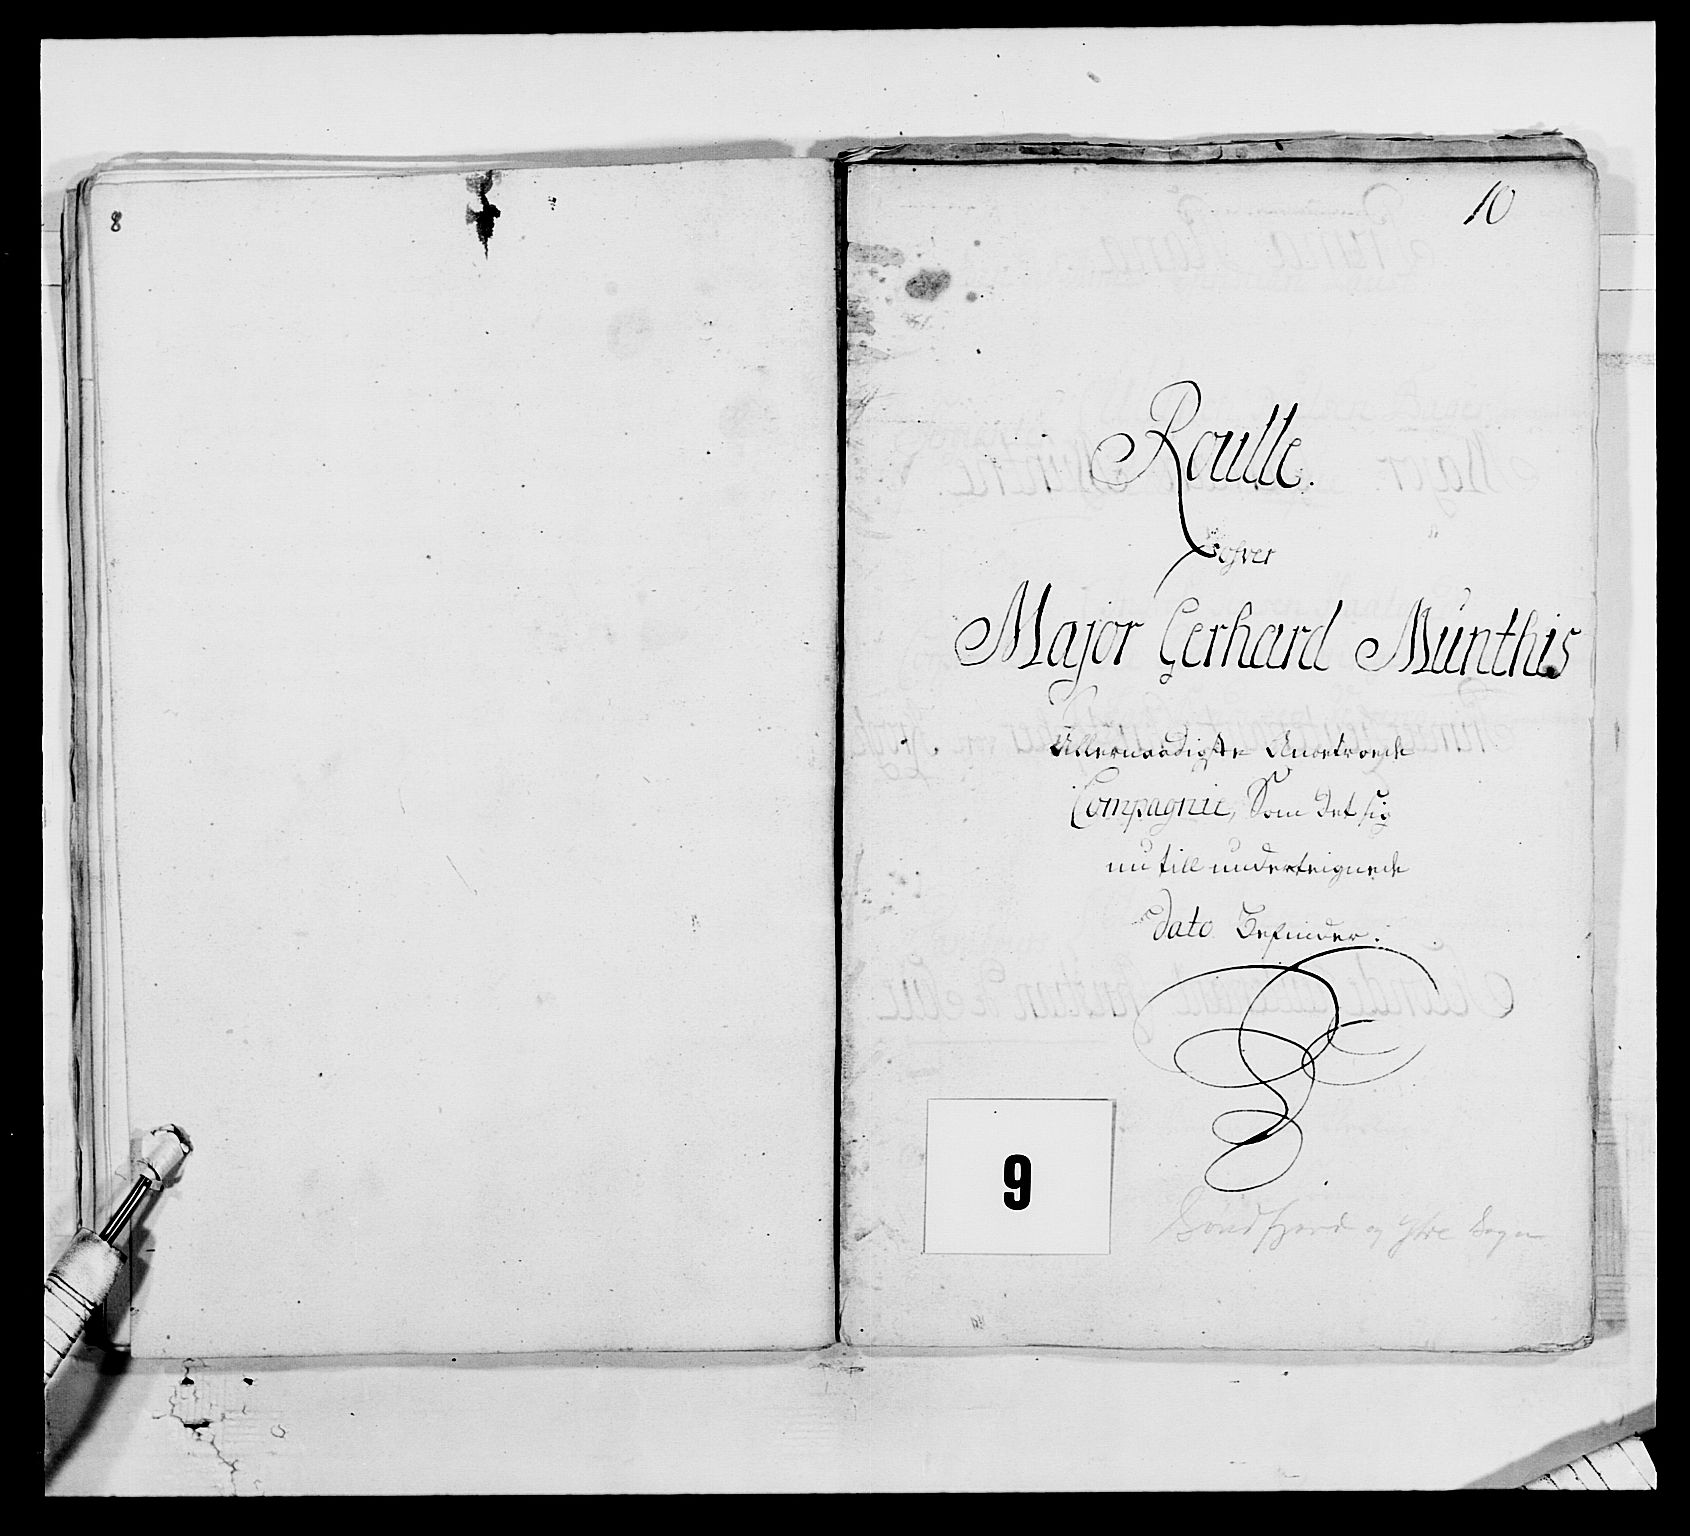 8
10
Roulle.
ofver
Major Gerhard Münthis
Allernaadigste Anbetroede
Compagnie, Som Det sig
nu till underteignede
Dato Befinder.
9
Søndfjord og Ytre Sogn